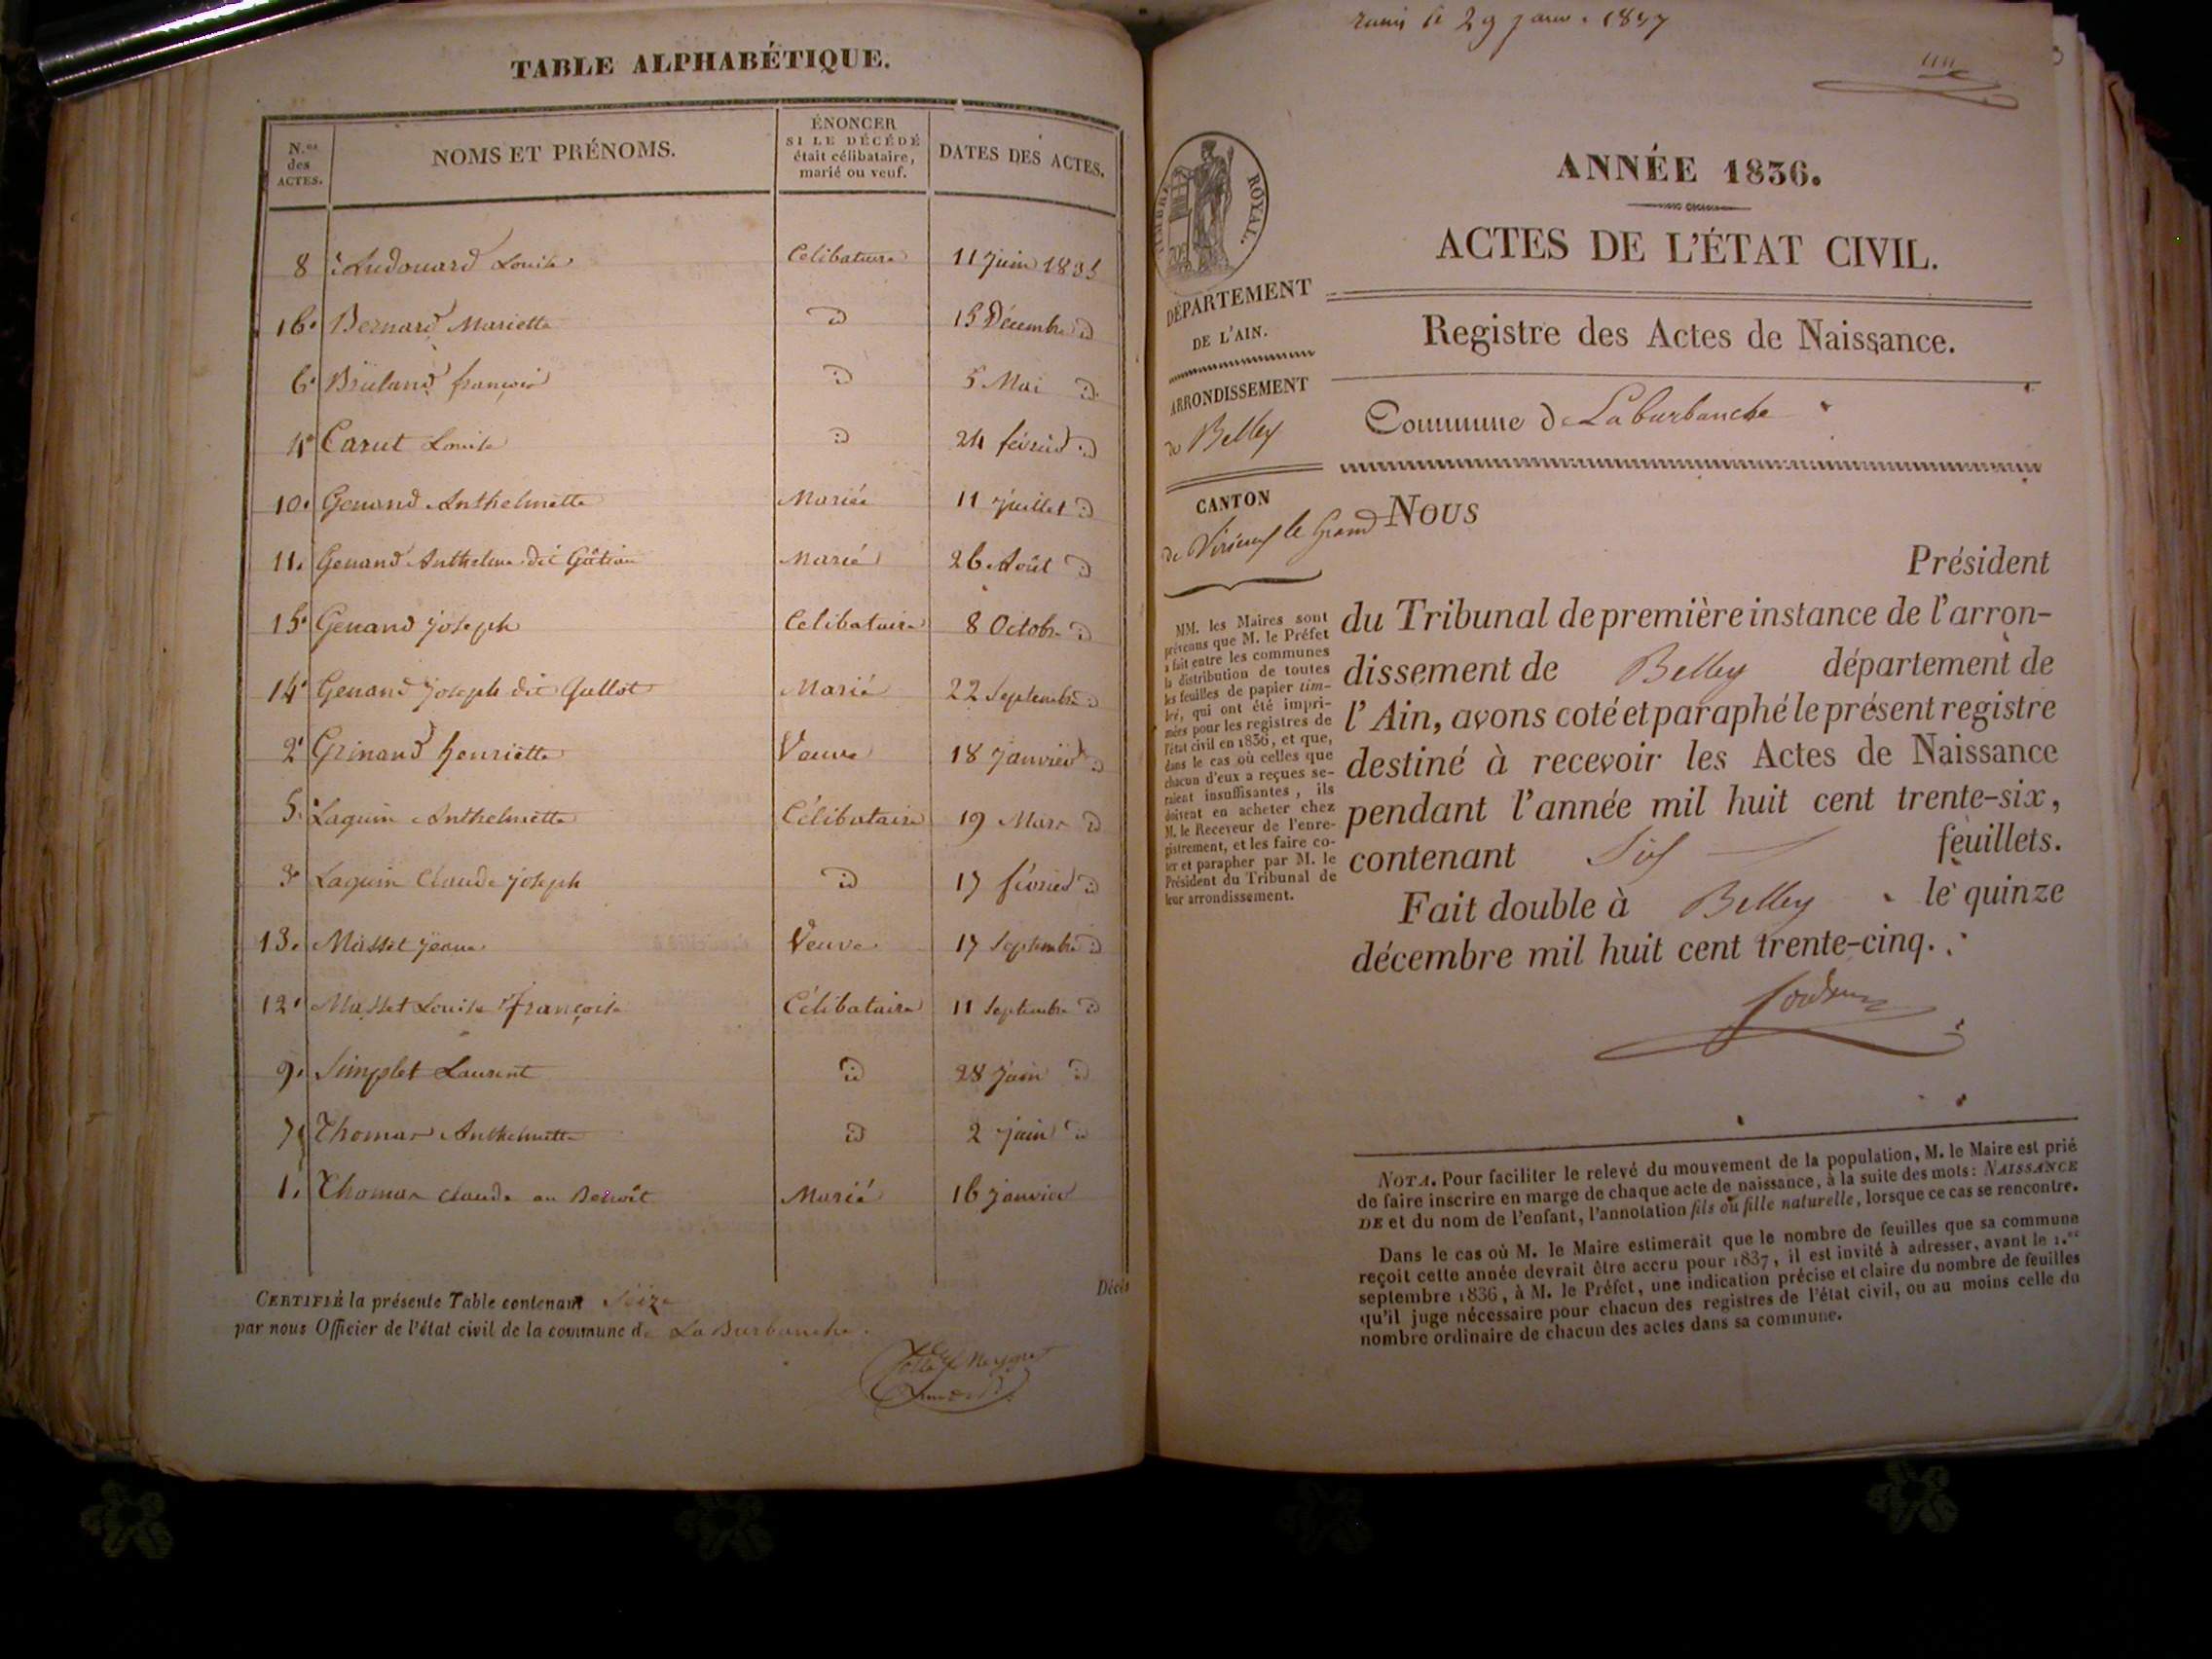 TABLE ALPHABÉTIQUE.
N.os des ACTES.
NOMS ET PRÉNOMS.
ÉNONCER SI LE DÉCÉDÉ était célibataire, marié ou veuf.
DATES DES ACTES.
8 Audouard Louise Celibataire 11 Juin 1835
16. Bernard Mariette id 15 Décembre id
6. françois id 5 Mai id
4 Carut Louise id 24 février id
10. Genand Anthelmette Mariée 11 juillet id
11. Genand Anthelme dit Gâtian Marié 26 Août id
15. Genand Joseph Celibataire 8 Octobre id
14. Genand Joseph dit Gallot Marié 22 Septembre id
2 Grinand henriette Veuve 18 Janvier id
5. Laguin Anthelmette Célibataire 19 Mars id
3 Laguin Claude Joseph id 17 février id
13. Masset Jeanne Veuve 17 Septembre id
12. Masset Louise françoise Célibataire 11 Septembre id
9. Simplet Laurent id 28 Juin id
7 Thomas Anthelmette id 2 Juin id
1. Thomas claude ou Benoît Marié 16 janvier
Décès
CERTIFIÉ la présente Table contenant Seize
par nous Officier de l'état civil de la commune de La Burbanche.
le 29 janv. 1837
TIMBRE ROYAL.
ANNÉE 1836.
ACTES DE L'ÉTAT CIVIL.
DÉPARTEMENT
DE L'AIN.
ARRONDISSEMENT
de Belley
CANTON
de Virieux le Grand
MM. les Maires sont
prévenus que M. le Préfet
a fait entre les communes
la distribution de toutes
les feuilles de papier tim-
bré, qui ont été impri-
mées pour les registres de
l'état civil en 1836, et que,
dans le cas où celles que
chacun d'eux a reçues se-
raient insuffisantes, ils
doivent en acheter chez
M. le Receveur de l'enre-
gistrement, et les faire co-
ter et parapher par M. le
Président du Tribunal de
leur arrondissement.
Registre des Actes de Naissance.
Commune de Laburbanche
NOUS
Président
du Tribunal de première instance de l'arron-
dissement de Belley département de
l'Ain, avons coté et paraphé le présent registre
destiné à recevoir les Actes de Naissance
pendant l'année mil huit cent trente-six,
contenant Six feuillets.
Fait double à Belley le quinze
décembre mil huit cent trente-cinq.
NOTA. Pour faciliter le relevé du mouvement de la population, M. le Maire est prié
de faire inscrire en marge de chaque acte de naissance, à la suite des mots: NAISSANCE
DE et du nom de l'enfant, l'annotation fils ou fille naturelle, lorsque ce cas se rencontre.
Dans le cas où M. le Maire estimerait que le nombre de feuilles que sa commune
reçoit cette année devrait être accru pour 1837, il est invité à adresser, avant le 1.er
septembre 1836, à M. le Préfet, une indication précise et claire du nombre de feuilles
qu'il juge nécessaire pour chacun des registres de l'état civil, ou au moins celle du
nombre ordinaire de chacun des actes dans sa commune.